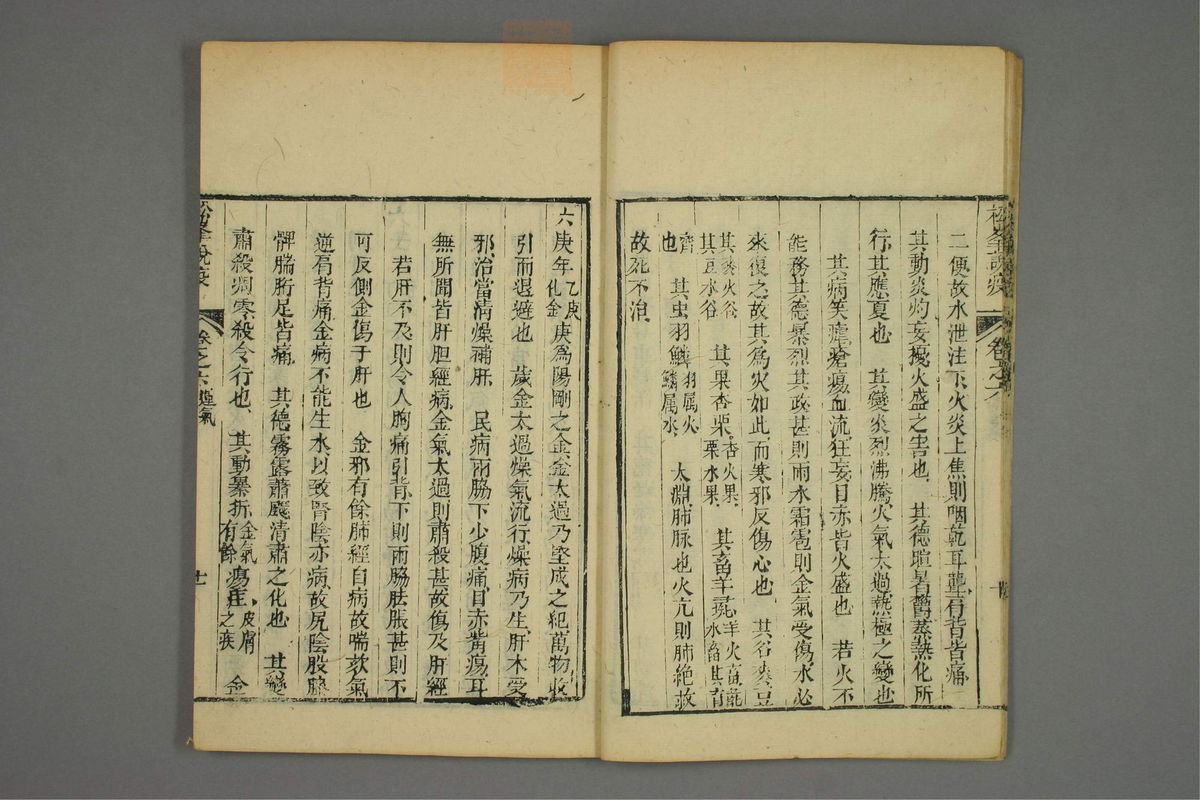 二便故水泄注下火炎上焦則咽乾耳聾肩背皆痛
其動炎灼妄擾火盛之害也　其德暄暑鬱蒸熱化所
行其應夏也　其變炎烈沸騰火氣太過熱極之變也
其病笑瘧瘡瘍血流狂妄目赤皆火盛也　若火不
能務其德暴烈其政甚則雨水霜雹則金氣受傷水必
來復之故其為灾如此而寒邪反傷心也　其谷麥豆
其麥火谷
其豆水谷
其果杏栗
杏火果
栗水果
其畜羊彘
羊火畜彘
水畜其育
齊
也　其虫羽鱗
羽属火
鱗属水
太淵肺脉也火亢則肺絶故
故死不治
松峯說疫
卷之六
六庚年
乙庚
化金
庚為陽剛之金金太過乃堅成之紀萬物收
引而退避也　歲金太過燥氣流行燥病乃生肝木受
邪治當清燥補肝　民病兩脇下少腹痛目赤眥瘍耳
無所聞皆肝胆經病金氣太過則肅殺甚故傷及肝經
若肝不及則令人胸痛引背下則兩脇胠脹甚則不
可反側金傷于肝也　金邪有餘肺經自病故喘欬氣
逆肩背痛金病不能生水以致腎陰亦病故尻陰股膝
髀腨胻足皆痛　其德霧露蕭飋清肅之化也　其變
肅殺凋零殺令行也　其動暴折
金氣
有餘
瘍疰
皮膚
之疾
金
松峯說疫
卷之六運氣
十一